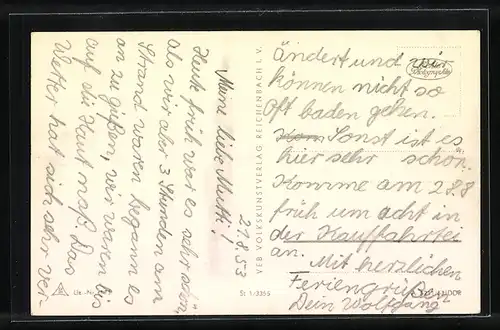 21.8.53
Meine liebe Mutti!
Heute früh war es sehr schön,
als wir aber 3 Stunden am
Strand waren begann es
an zu gießen, wir waren bis
auf die Haut naß. Das
Wetter hat sich sehr ver-
ändert und wir
können nicht so
oft baden gehen.
Sonst ist es
hier sehr schön.
Komme am 28.8
früh um acht in
der Kauffahrtei
an. Mit herzlichen
Feriengrüßen
Dein Wolfgang
VEB VOLKSKUNSTVERLAG REICHENBACH I. V.
St 1/3355